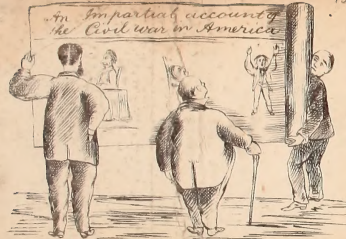 An Impartial account of
the Civil war in America